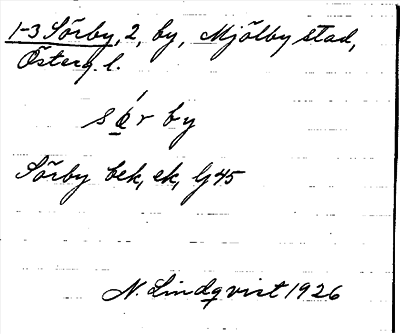 1-3 Sörby, 2, by, Mjölby stad,
Österg. l.
sö́r by
Sörby bek, ek, Gj 45
N. Lindqvist 1926